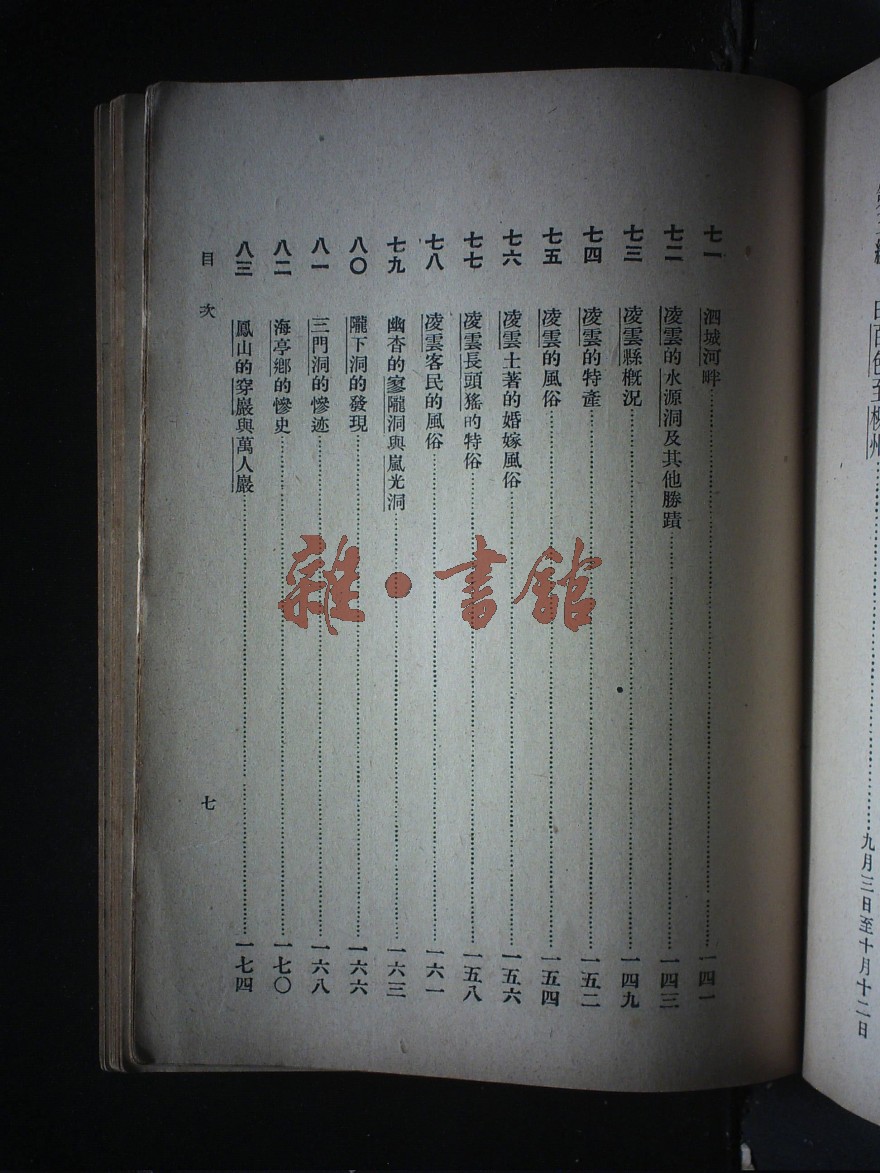 百色至柳州
九月三日至十月十二日
七一 泗城河畔 一四一
七二 凌雲的水源洞及其他勝蹟 一四三
七三 凌雲縣概況 一四九
七四 凌雲的特產 一五二
七五 凌雲的風俗 一五四
七六 凌雲土著的婚嫁風俗 一五六
七七 凌雲長頭猺的特俗 一五八
七八 凌雲客民的風俗 一六一
七九 幽杳的寥隴洞與嵐光洞 一六三
八〇 隴下洞的發現 一六六
八一 三門洞的慘迹 一六八
八二 海亭鄉的慘史 一七〇
八三 鳳山的穿巖與萬人巖 一七四
目次 七
雜·書館